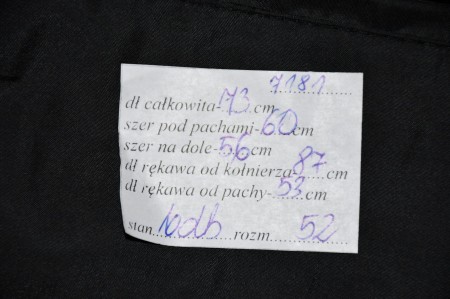 7181
dł całkowita-73cm
szer pod pachami-60cm
szer na dole-56cm
dł rękawa od kołnierza-87cm
dł rękawa od pachy-53cm
stan...bdb...rozm...52